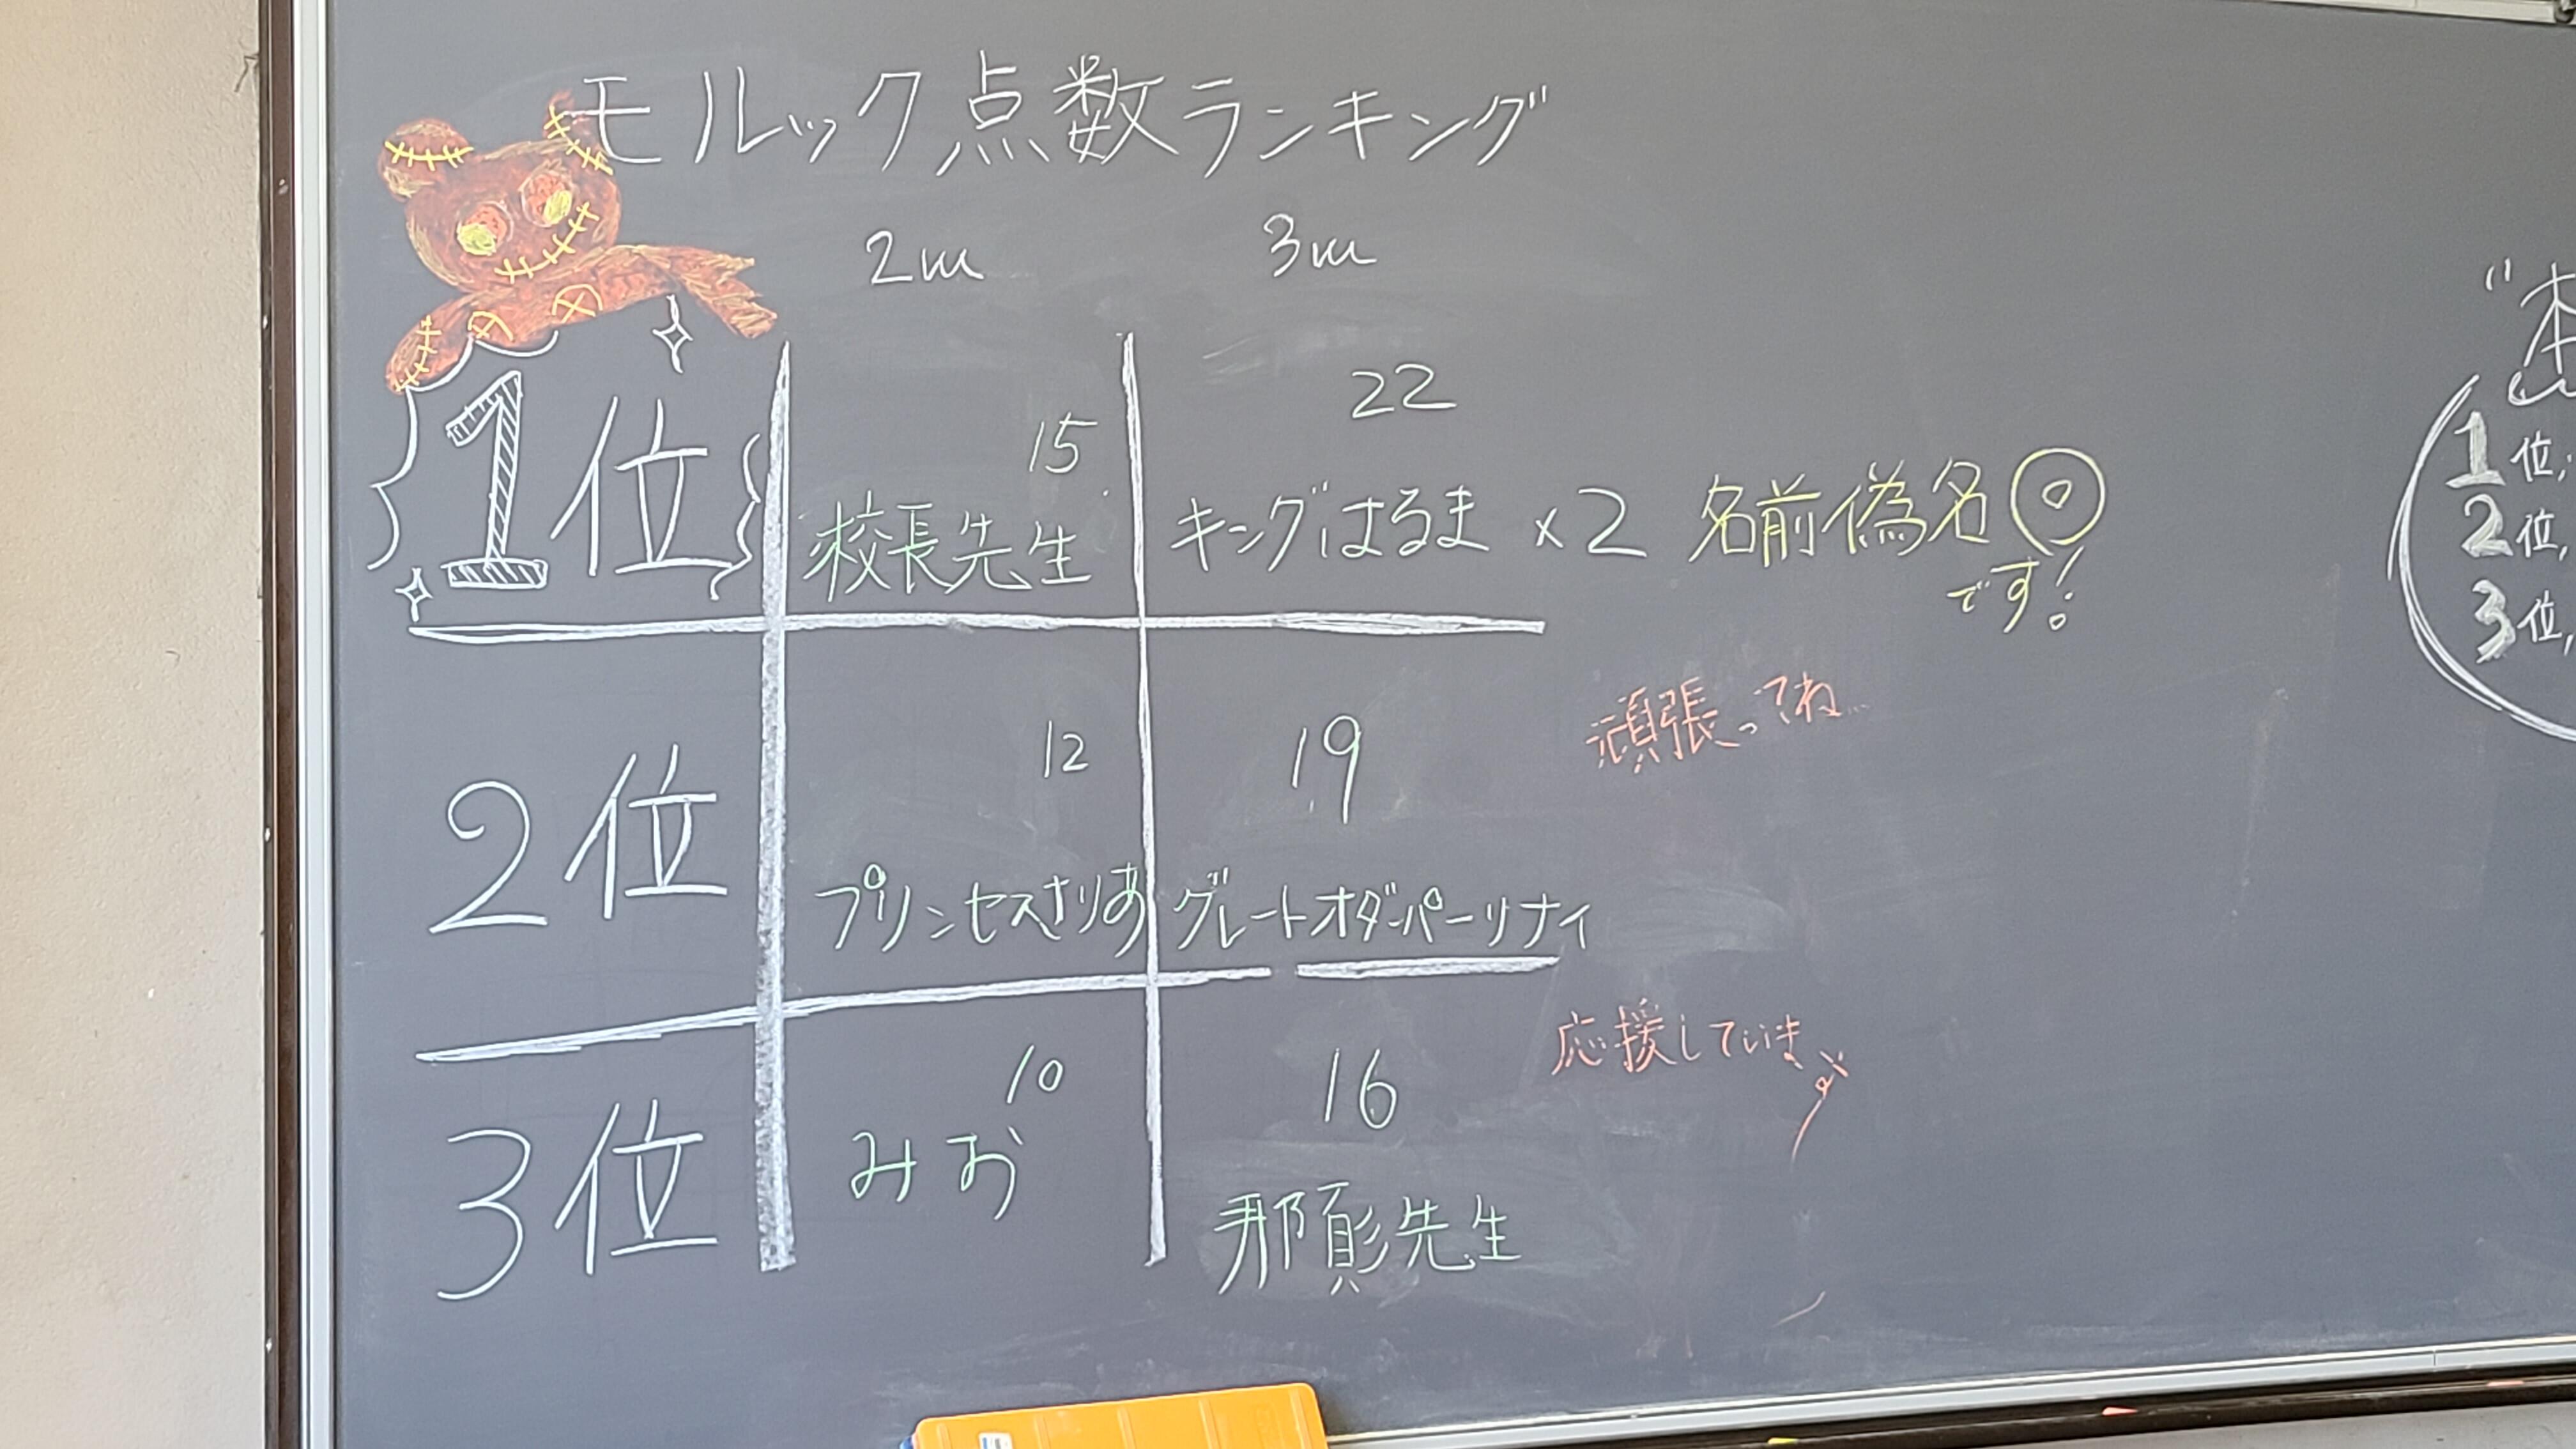 モルック点数ランキング
2m 3m
1位 15 22
校長先生 キングはるま ×2 名前偽名◎
です!
2位 12 19 頑張ってね…
プリンセスさりあ グレートオダパーリナイ
3位 10 16 応援しています
みお 那須先生
"本
1位,
2位,
3位,